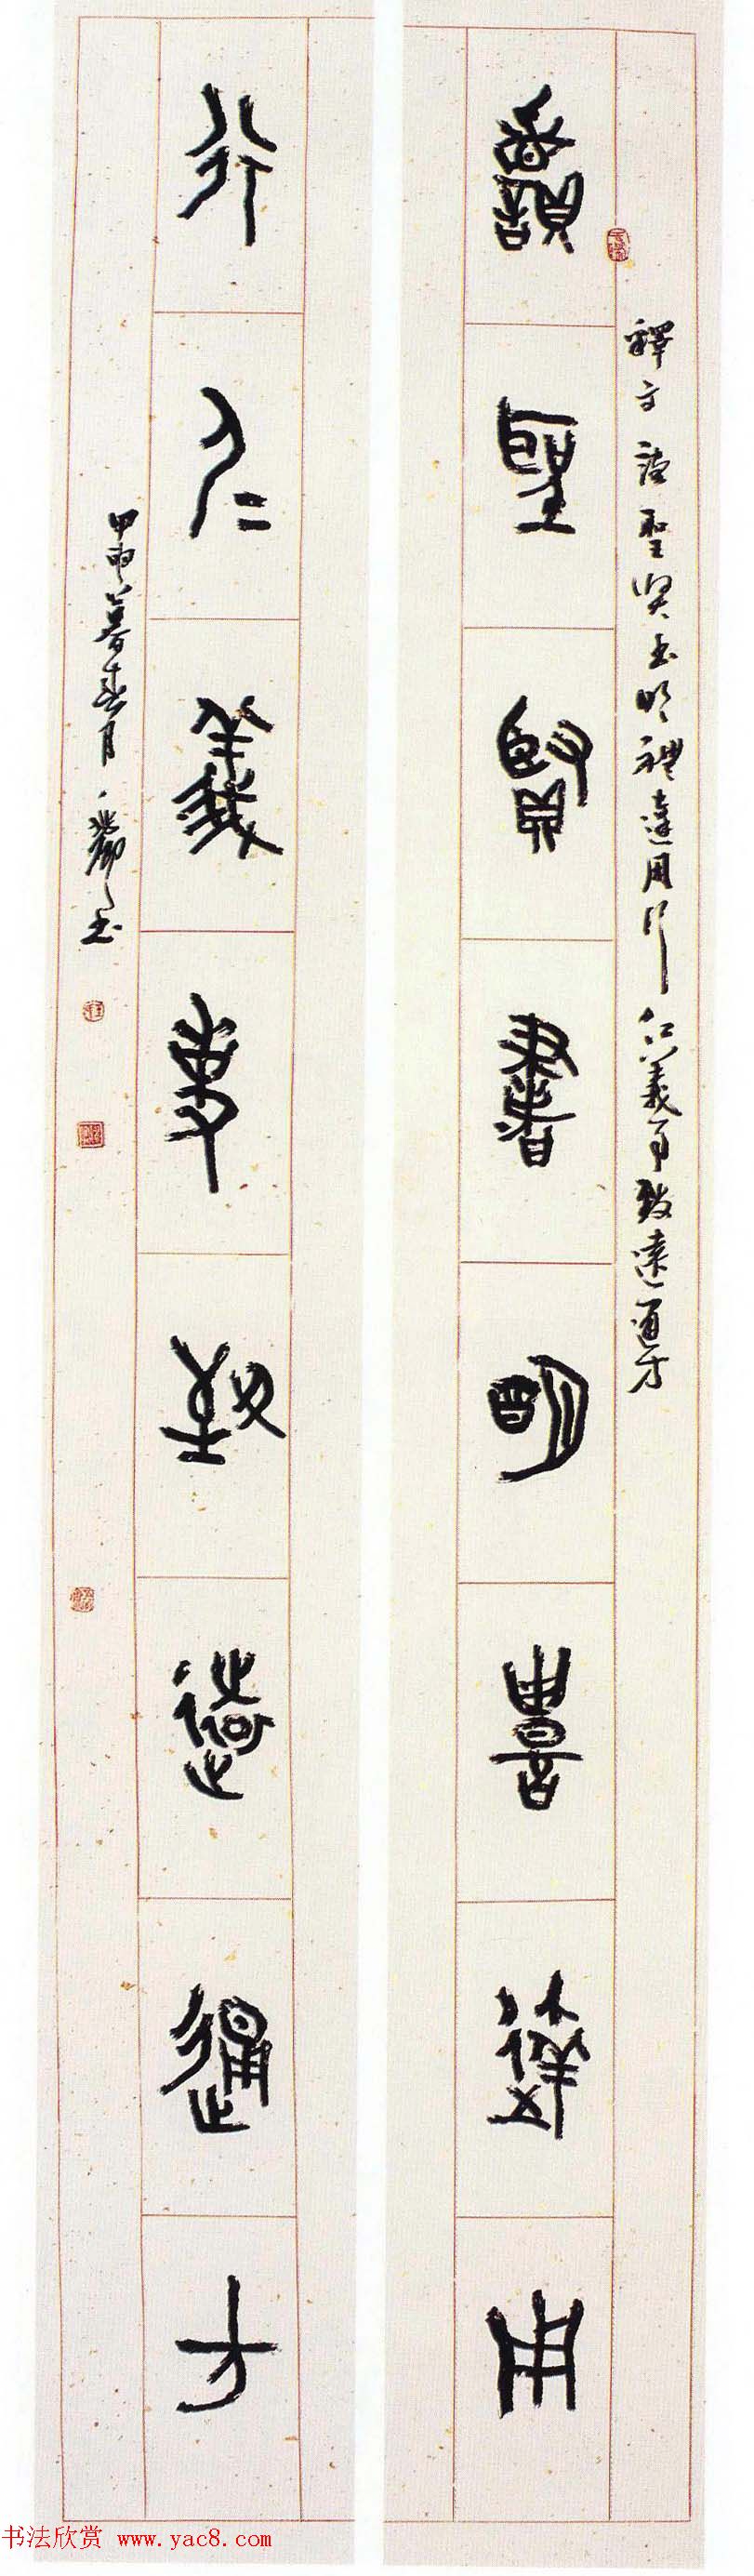 讀聖賢書明禮達用
釋文 讀聖賢書明禮達用行仁義事致遠通方
行仁義事致遠通方
甲申暮春月
书法欣赏 www.yac8.com